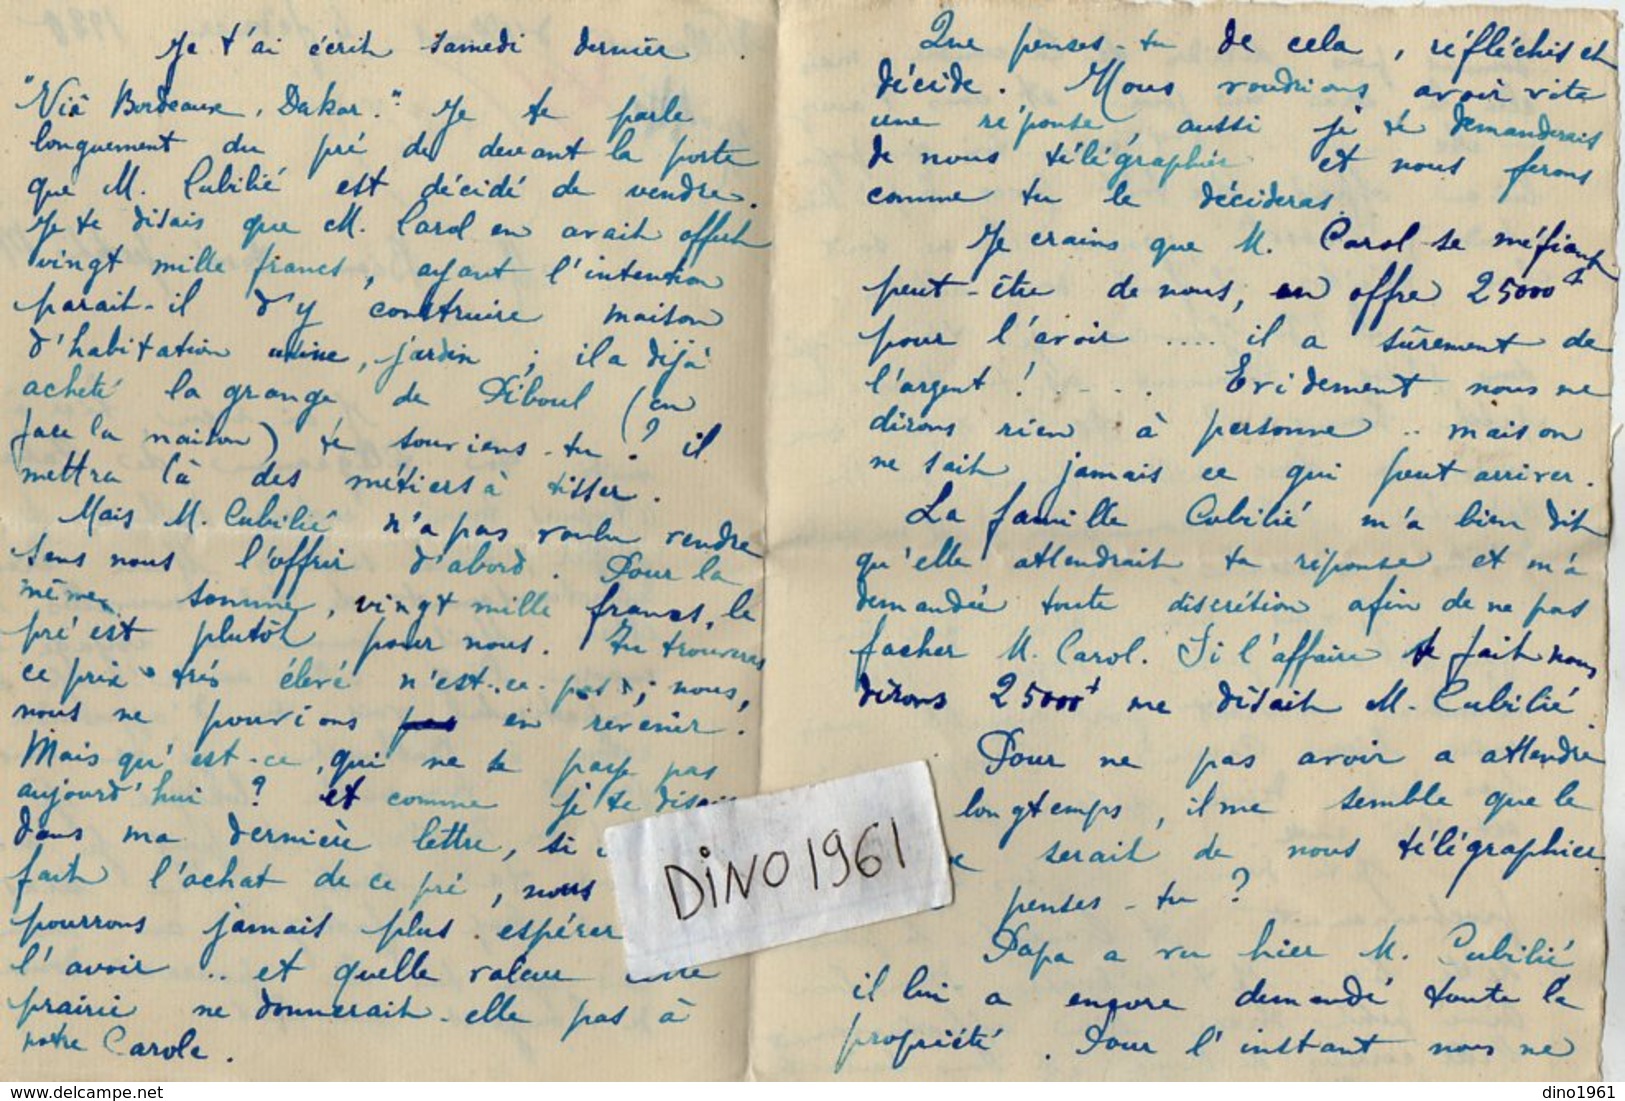 Je t'ai écrit samedi dernier.
"Viâ Bordeaux, Dakar." Je te parle
longuement du pré de devant la porte
que M. Cubilié est décidé de vendre.
Je te disais que M. Carol en avait offert
vingt mille francs, ayant l'intention
parait-il d'y construire maison
d'habitation usine, jardin ; il a déjà
acheté la grange de Piboul (en
face la maison) te souviens-tu ? il
mettra là des métiers à tisser.
Mais M. Cubilié n'a pas voulu vendre
sans nous l'offrir d'abord. Pour la
même somme, vingt mille francs, le
pré est plutôt pour nous. Tu trouveras
ce prix très élevé n'est-ce-pas ; nous,
nous ne pouvions en revenir !
Mais qu'est-ce, qui ne se paye pas
aujourd'hui ? et comme je te disais
dans ma dernière lettre, si
fait l'achat de ce pré, nous
pourrons jamais plus espérer
l'avoir .. et quelle valeur cette
prairie ne donnerait-elle pas à
notre Carole.
Que penses-tu de cela, réfléchis et
décide. Nous voudrions avoir vite
une réponse, aussi je te demanderais
de nous télégraphier et nous ferons
comme tu le décideras.
Je crains que M. Carol se méfiant
peut-être de nous, en offre 25000f
pour l'avoir .... il a sûrement de
l'argent ! ... Evidement nous ne
dirons rien à personne .. mais on
ne sait jamais ce qui peut arriver.
La famille Cubilié m'a bien dit
qu'elle attendrait ta réponse et m'a
demandée toute discrétion afin de ne pas
facher M. Carol. Si l'affaire se fait nous
dirons 25000f me disait M. Cubilié
Pour ne pas avoir a attendre
longtemps, il me semble que le
serait de nous télégraphier.
penses-tu ?
Papa a vu hier M. Cubilié
il lui a encore demandé toute la
propriété. Pour l'instant nous ne
DiNO 1961
dino1961